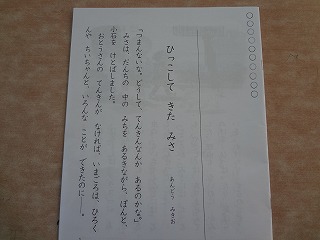 ○○○○○○○○○○
ひっこして きた みさ
あんどう みきお
「つまんないな。どうして、てんきんなんか あるのかな。」
みさは、だんちの 中の みちを あるきながら、ぽんと、
小石を けとばしました。
おとうさんの てんきんが なければ、いまごろは、ひろく
んや ちいちゃんと、いろんな ことが できたのに――。